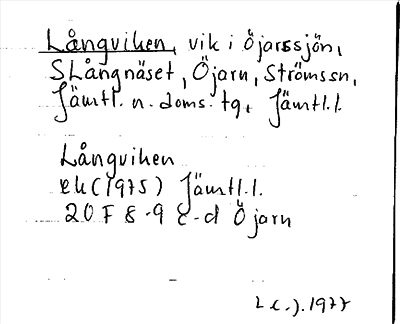 Långviken, vik i Öjarssjön,
SLångnäset, Öjarn, Strömssn,
Jämtl. n. doms. tg, Jämtl.l.
Långviken
ek (1975) Jämtl.l.
20 F 8-9 c-d Öjarn
1977